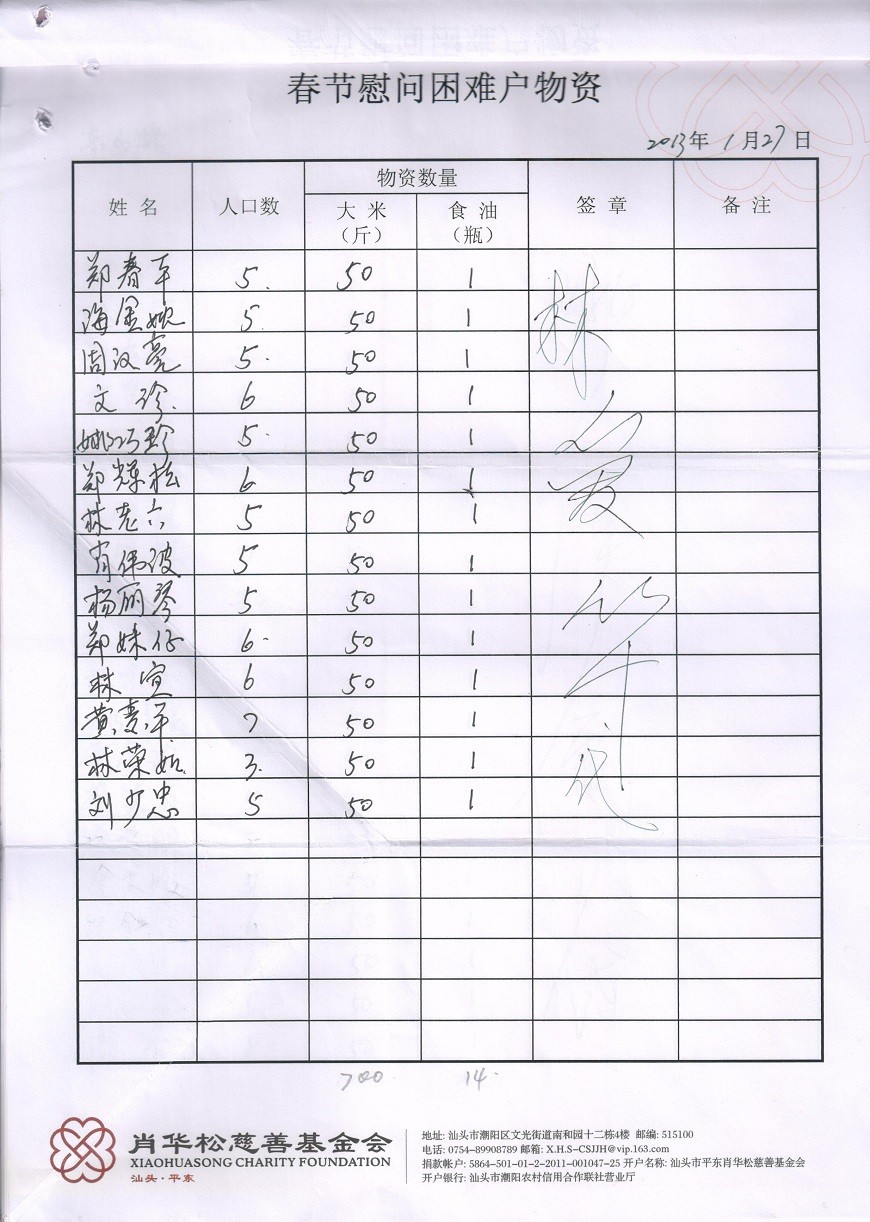 春节慰问困难户物资
2013年 1月27日
姓 名 人口数 物资数量 签 章 备 注
大 米 食 油
(斤) (瓶)
郑春平 5. 50 1
海 5. 50 1
周汉亮 5. 50 1
文 珍. 6 50 1
姚巧珍 5. 50 1
郑辉松 6 50 1
林老六 5 50 1
肖伟波 5 50 1
杨丽琴 5 50 1
郑妹仔 6. 50 1
林 宜 6 50 1
黄 7 50 1
林荣 3. 50 1
刘少忠 5 50 1
林
代
700. 14.
肖华松慈善基金会
XIAOHUASONG CHARITY FOUNDATION
汕头·平东
地址: 汕头市潮阳区文光街道南和园十二栋4楼 邮编: 515100
电话: 0754-89908789 邮箱: X.H.S-CSJJH@vip.163.com
捐款帐户: 5864-501-01-2-2011-001047-25 开户名称: 汕头市平东肖华松慈善基金会
开户银行: 汕头市潮阳农村信用合作联社营业厅